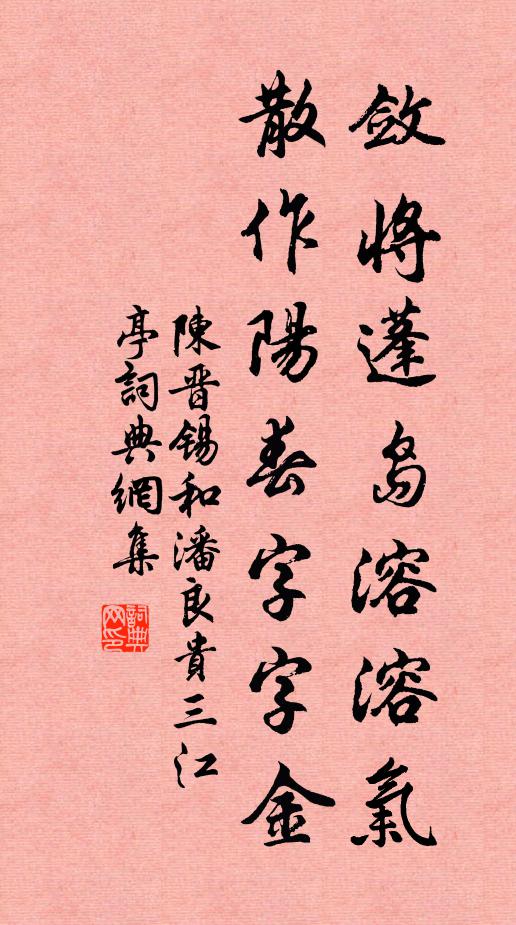 斂將蓬島溶溶氣
散作陽春字字金
陳晉錫和潘良貴三江
亭詞典網集
詞典网印